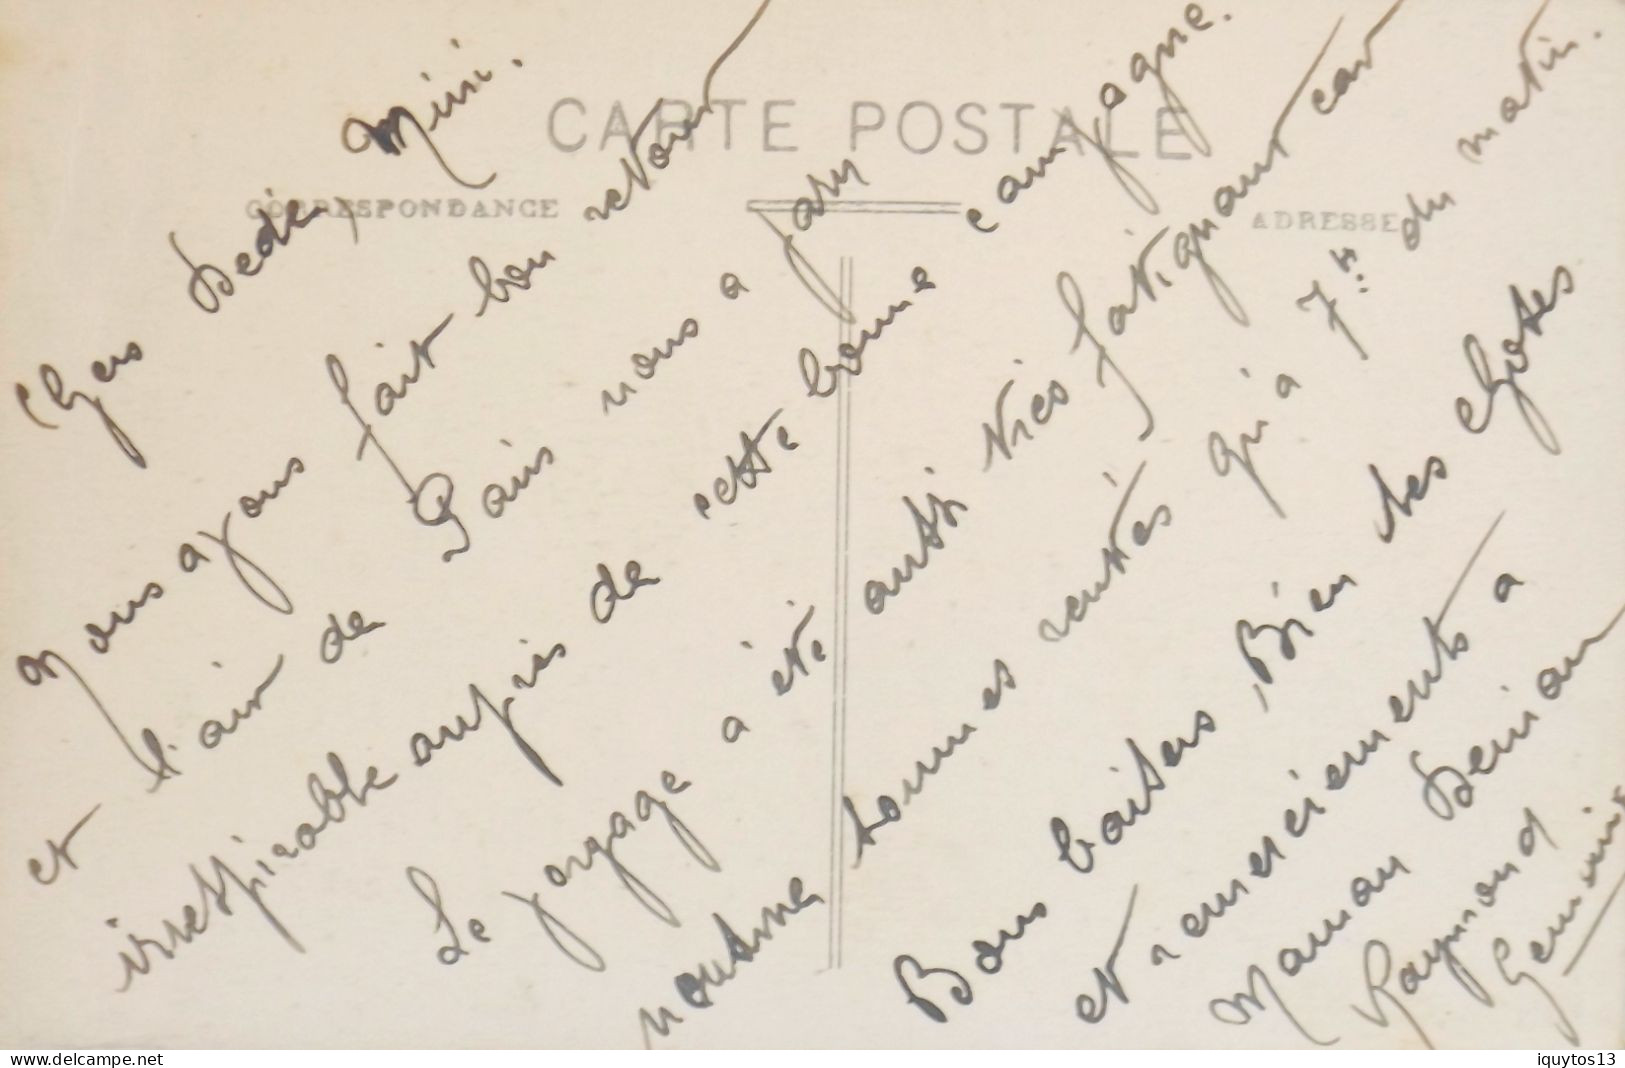 CARTE POSTALE
CORRESPONDANCE
ADRESSE
Chers Dédé, Mimi.
Nous ayons fait bon retour
et l'air de Paris nous a paru
irrespirable auprès de cette bonne campagne.
Le voyage a été aussi très fatiguant car
nous ne sommes rentrés qu'a 7h du matin.
Bons baisers, Bien des choses
et remerciements a
Maman Denian
Raymond
Germaine
www.delcampe.net
iquytos13